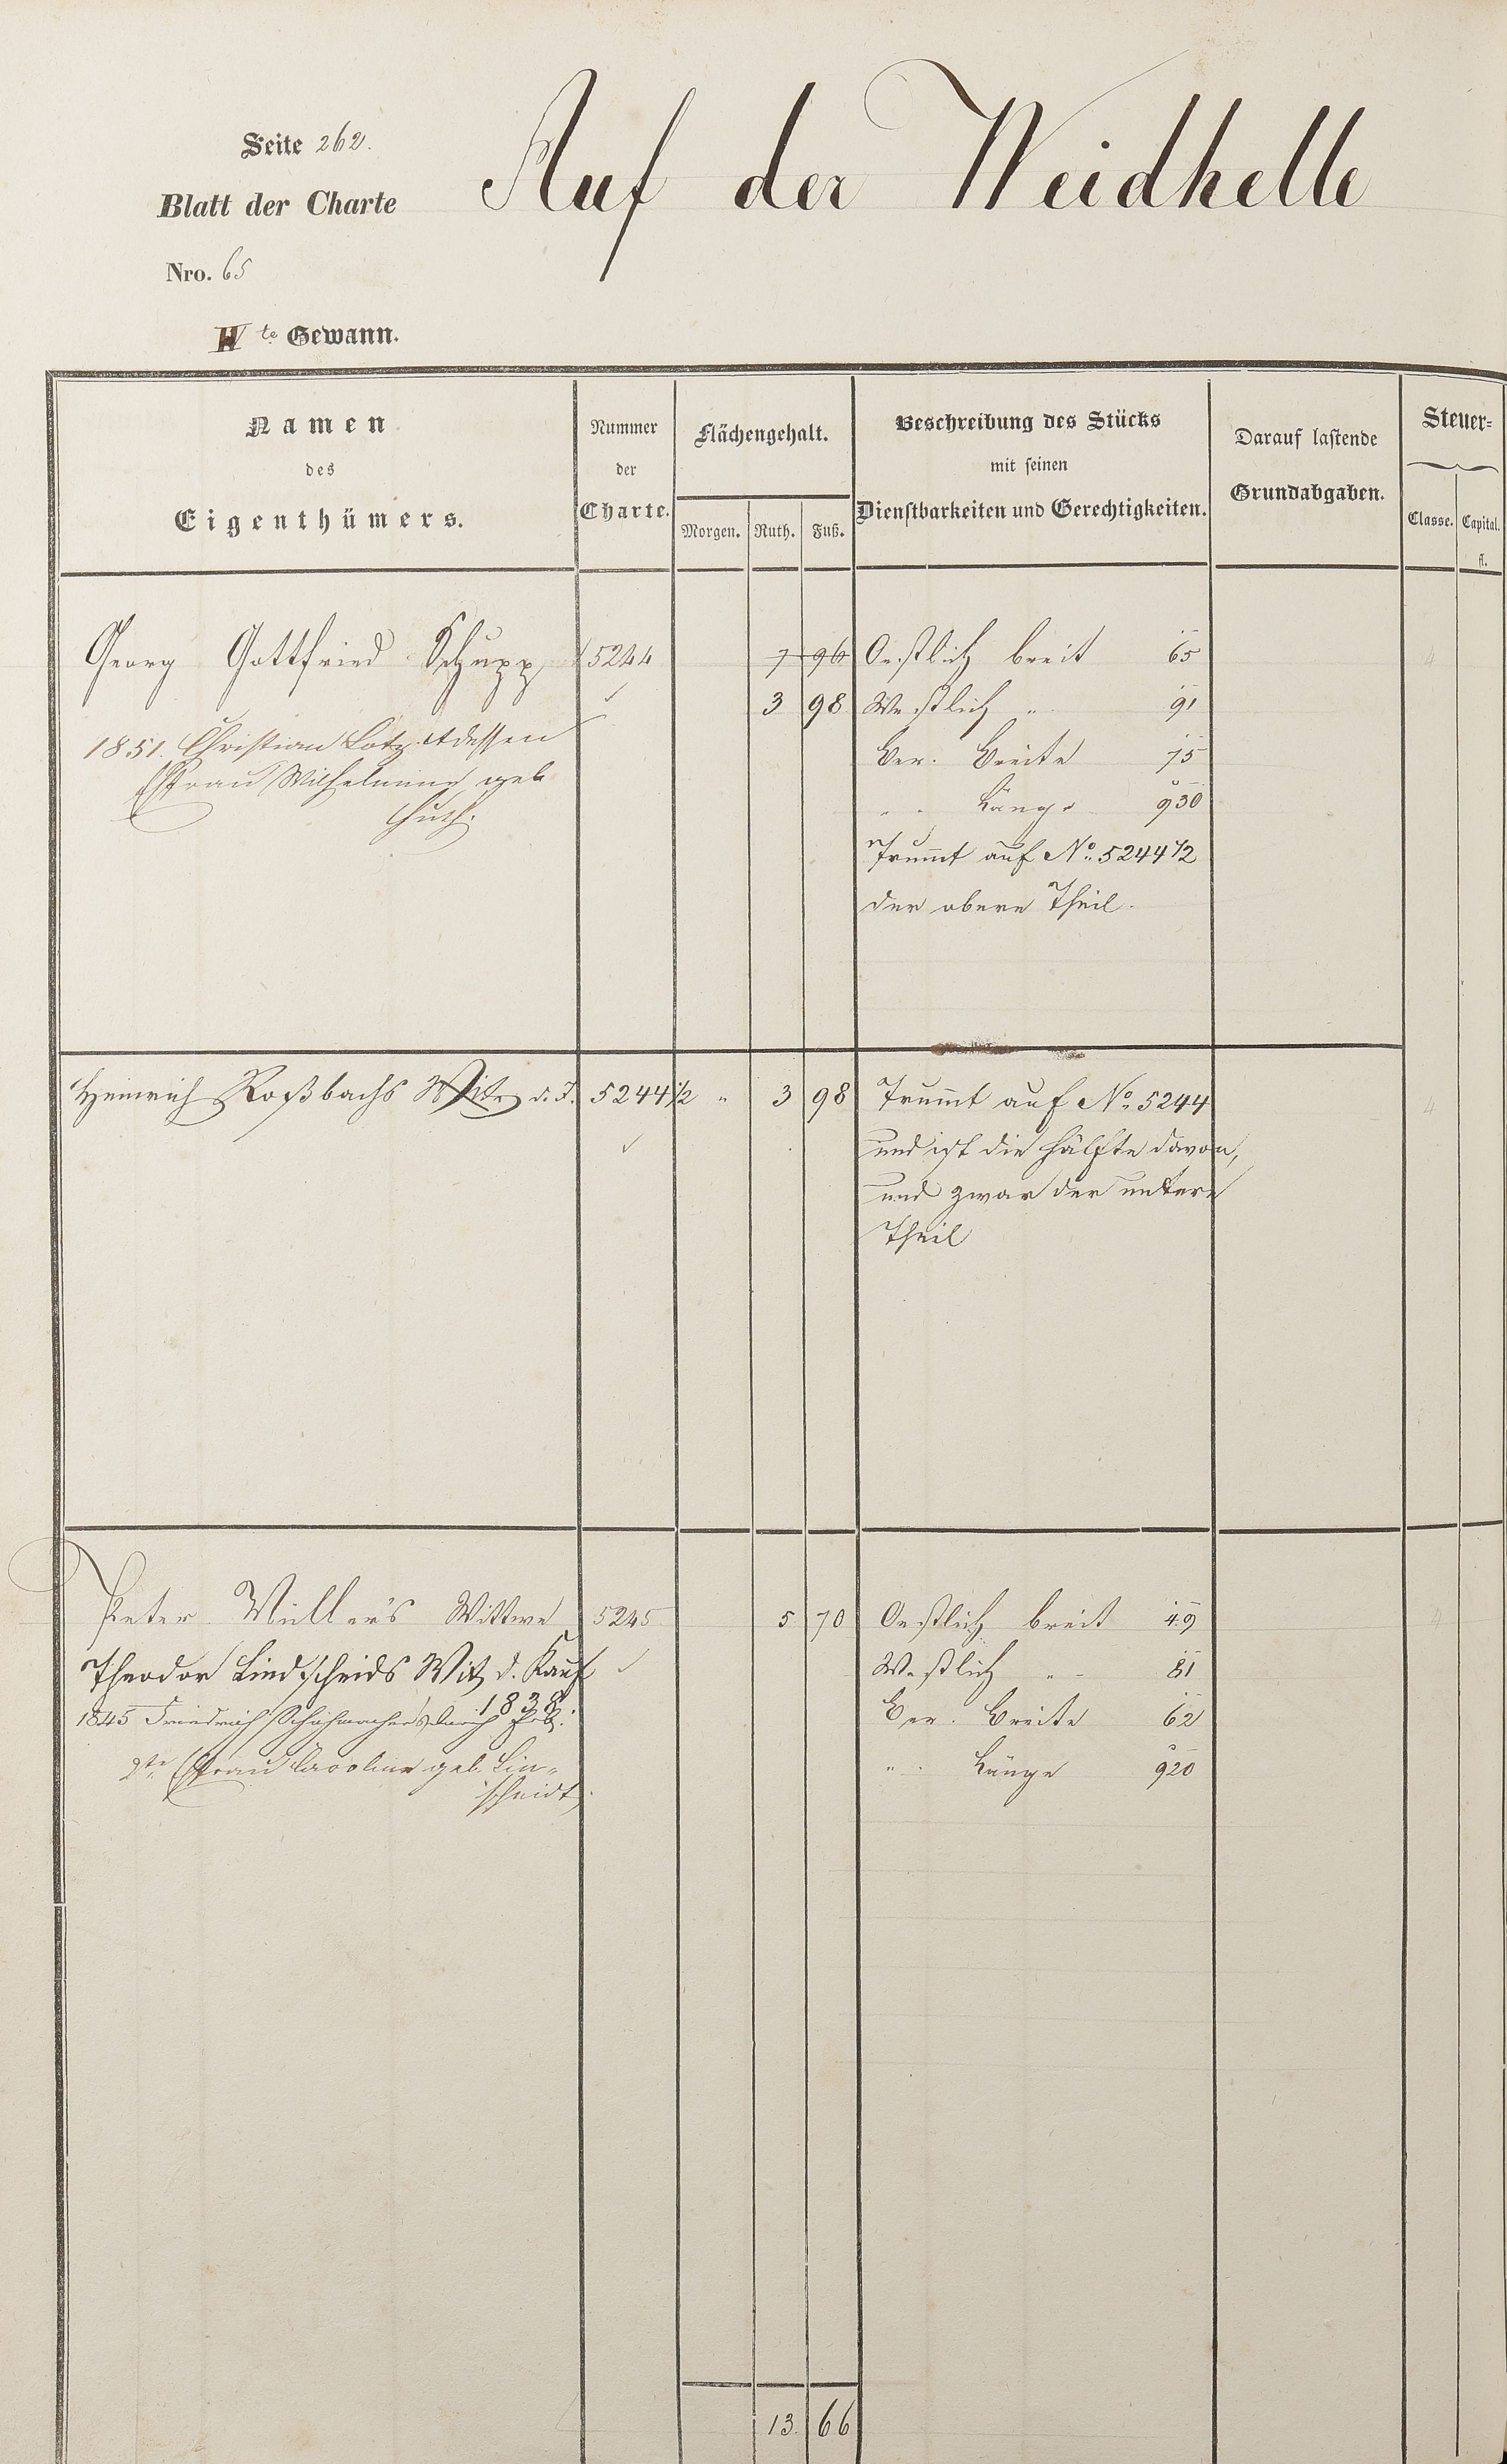 Seite 262.
Auf der Weidhelle
Blatt der Charte
Nro. 65
IIte Gewann.
Namen
des
Eigenthümers.
Nummer
der
Charte.
Flächengehalt.
Morgen. Ruth. Fuß.
Beschreibung des Stücks
mit seinen
Dienstbarkeiten und Gerechtigkeiten.
Darauf lastende
Grundabgaben.
Steuer-
Classe. Capital.
fl.
Georg Gottfried Schupp 5244 7 96 Oestlich breit 65 4
3 98 Westlich " 91
1851. Christian Lotz dessen
Ver. Breite 75
Ehfrau Wilhelmine geb
Huth.
" . Länge 930
Trumt auf No. 5244 1/2
der obere Theil.
Heinrich Roßbachs Witz d. J. 5244 1/2 " 3 98 Trumt auf No. 5244 4
und ist die Hälfte davon,
und zwar der untere
Theil
Peter Müller's Wittwe 5245 5 70 Oestlich breit 49 4
Theodor Lindscheids Witz d. Kauf
Westlich " 81
1838
1845 Friedrich Schuhmacher's durch
Ver. Breite 62
2te Ehfrau Caroline geb. Lin-
scheidt
" . Länge 920
13. 66